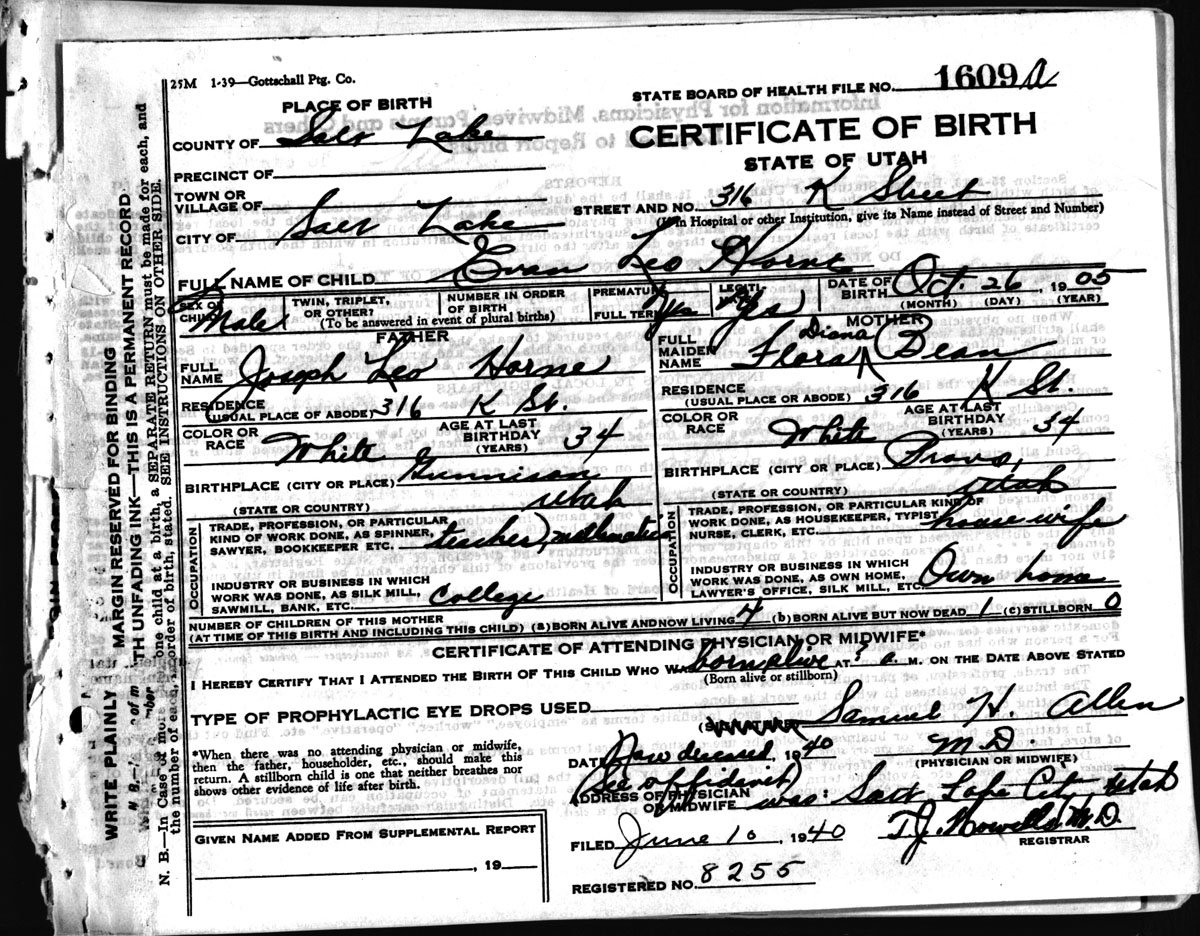 25M 1-39—Gottschall Ptg. Co.
STATE BOARD OF HEALTH FILE NO. 1609 a
PLACE OF BIRTH
CERTIFICATE OF BIRTH
STATE OF UTAH
COUNTY OF Salt Lake
PRECINCT OF
TOWN OR
VILLAGE OF
STREET AND NO. 316 K Street
(If in Hospital or other Institution, give its Name instead of Street and Number)
CITY OF Salt Lake
FULL NAME OF CHILD Evan Leo Horne
SEX OF CHILD Male
TWIN, TRIPLET, OR OTHER?
NUMBER IN ORDER OF BIRTH
(To be answered in event of plural births)
PREMATURE
FULL TERM Yes
LEGITI Yes
DATE OF BIRTH Oct. 26, 1905
(MONTH) (DAY) (YEAR)
FATHER
FULL NAME Joseph Leo Horne
RESIDENCE
(USUAL PLACE OF ABODE) 316 K St.
COLOR OR RACE White
AGE AT LAST BIRTHDAY (YEARS) 34
BIRTHPLACE (CITY OR PLACE) Gunnison
(STATE OR COUNTRY) Utah
OCCUPATION
TRADE, PROFESSION, OR PARTICULAR
KIND OF WORK DONE, AS SPINNER,
SAWYER, BOOKKEEPER ETC. teacher, mathematics
INDUSTRY OR BUSINESS IN WHICH
WORK WAS DONE, AS SILK MILL,
SAWMILL, BANK, ETC. College
MOTHER
FULL MAIDEN NAME Flora Diana Dean
RESIDENCE
(USUAL PLACE OR ABODE) 316 K St.
COLOR OR RACE White
AGE AT LAST BIRTHDAY (YEARS) 34
BIRTHPLACE (CITY OR PLACE) Provo,
(STATE OR COUNTRY) Utah
OCCUPATION
TRADE, PROFESSION, OR PARTICULAR KIND OF
WORK DONE, AS HOUSEKEEPER, TYPIST
NURSE, CLERK, ETC. house wife
INDUSTRY OR BUSINESS IN WHICH
WORK WAS DONE, AS OWN HOME,
LAWYER'S OFFICE, SILK MILL, ETC. Own home
NUMBER OF CHILDREN OF THIS MOTHER
(AT TIME OF THIS BIRTH AND INCLUDING THIS CHILD) (a) BORN ALIVE AND NOW LIVING 4 (b) BORN ALIVE BUT NOW DEAD 1 (c) STILLBORN 0
CERTIFICATE OF ATTENDING PHYSICIAN OR MIDWIFE*
I HEREBY CERTIFY THAT I ATTENDED THE BIRTH OF THIS CHILD WHO WAS born alive AT ? a. M. ON THE DATE ABOVE STATED
(Born alive or stillborn)
TYPE OF PROPHYLACTIC EYE DROPS USED
Samuel H. Allen
*When there was no attending physician or midwife,
then the father, householder, etc., should make this
return. A stillborn child is one that neither breathes nor
shows other evidence of life after birth.
DATE (Now deceased, 1940 M.D.
(PHYSICIAN OR MIDWIFE)
(See affidavit)
ADDRESS OF PHYSICIAN
OR MIDWIFE was: Salt Lake City, Utah
GIVEN NAME ADDED FROM SUPPLEMENTAL REPORT
, 19
FILED June 10, 1940 T.J. Howells M.D.
REGISTRAR
REGISTERED NO. 8255
WRITE PLAINLY
MARGIN RESERVED FOR BINDING
TH UNFADING INK—THIS IS A PERMANENT RECORD
N. B.—In Case of more one child at a birth, a SEPARATE RETURN must be made for each, and
the number of each, order of birth, stated. SEE INSTRUCTIONS ON OTHER SIDE.